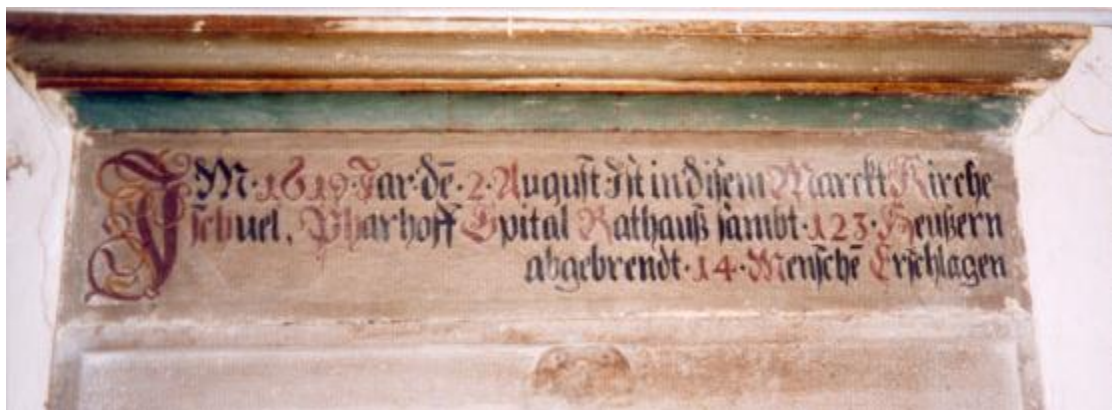 IM·1619·Jar·dē·2·August·Ist in disem Marckt Kirche
schuel, Pharhoff Spital Rathauß sambt·123·Heußern
abgebrendt·14·Menschē Erschlagen